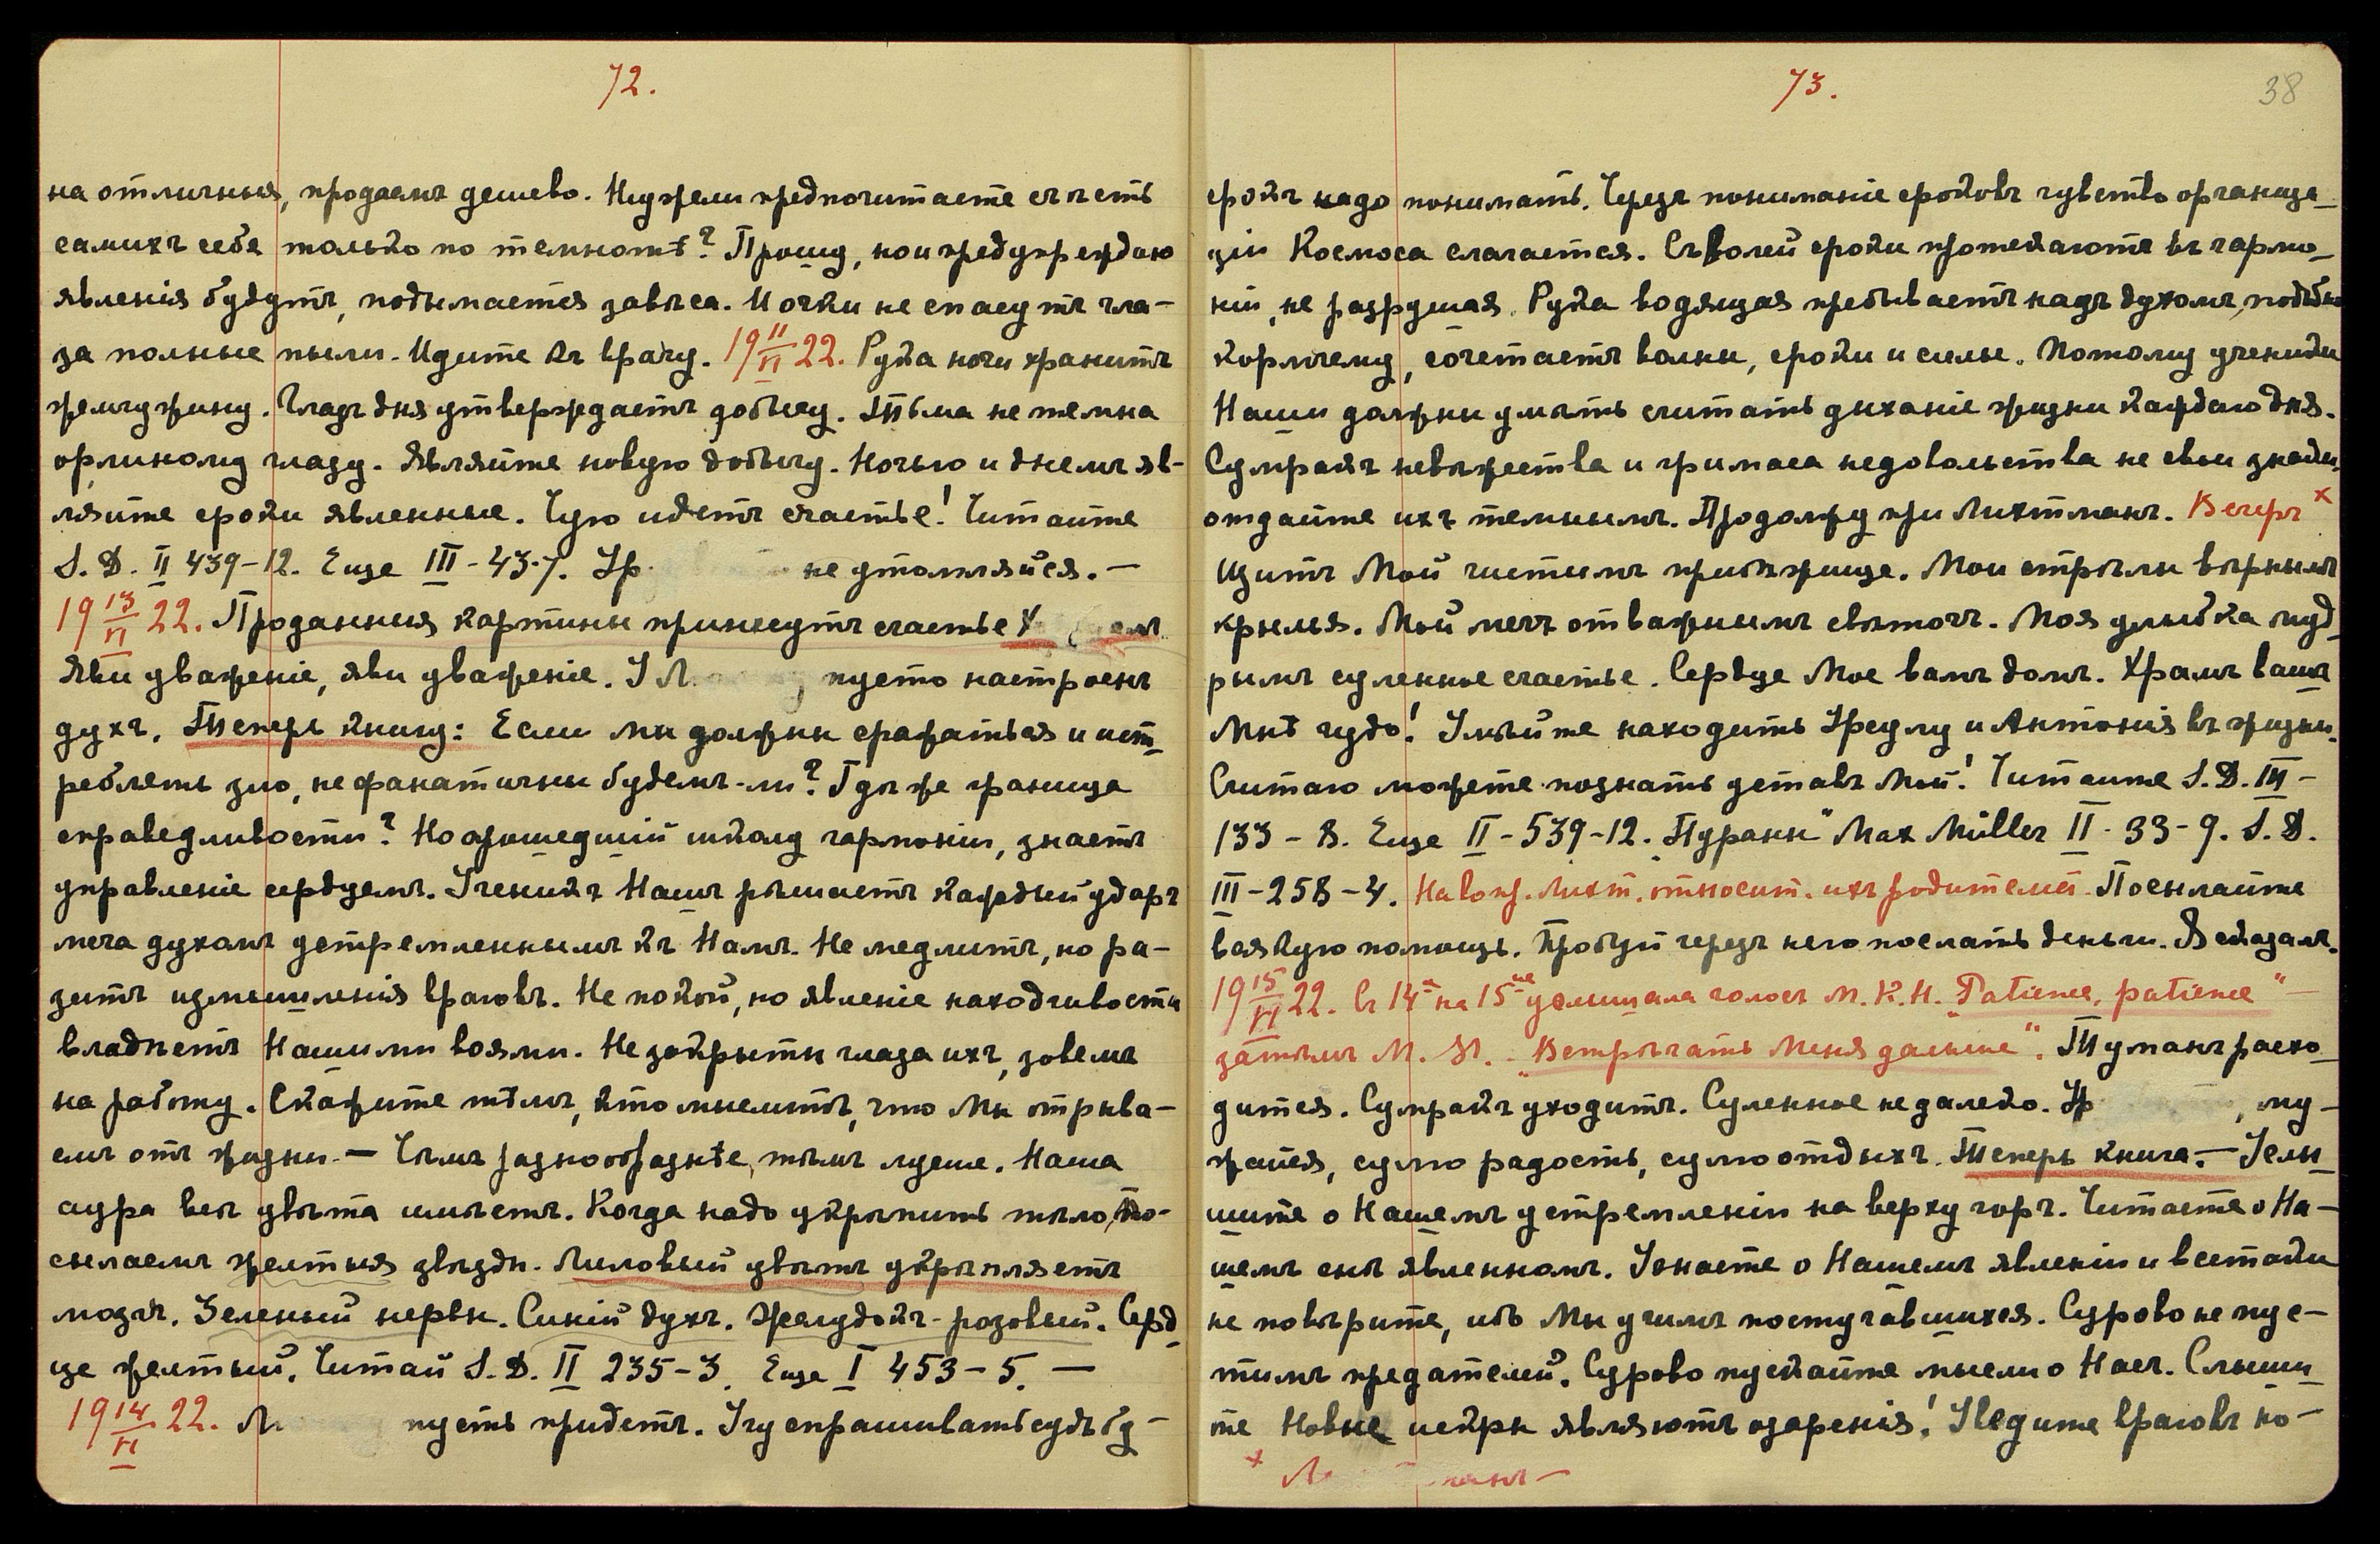 72.
на отличныя, продаемъ дешево. Неужели предпочитаете ѣсть
самихъ себя только по темнотѣ? Прошу, но и предупреждаю
явленія будутъ, подымается завѣса. И очки не спасутъ гла-
за полные пыли. Идите къ врачу. 19 11/VI 22. Рука ночи хранитъ
жемчужину. Глазъ дня утверждаетъ добычу. Тьма не темна
орлиному глазу. Являйте новую добычу. Ночью и днемъ яв-
ляйте сроки явленные. Чую идетъ счастье! Читайте
S. D. II 439-12. Еще III-43-7. Ур. не утомляйся. —
19 13/VI 22. Проданныя картины принесутъ счастье
Яви уваженіе, яви уваженіе. У Л. пусто настроенъ
духъ. Теперь книгу: Если мы должны сражаться и ист-
реблять зло, не фанатичны будемъ-ли? Гдѣ же граница
справедливости? Но прошедшій школу гармоніи, знаетъ
управленіе сердцемъ. Ученикъ Нашъ рѣшаетъ каждый ударъ
меча духомъ устремленнымъ къ Намъ. Не медлитъ, но ра-
зитъ измышленія враговъ. Не покой, но явленіе находчивости
владѣетъ Нашими воями. Не закрыты глаза ихъ, зовемъ
на работу. Скажите тѣмъ, кто мыслитъ, что Мы отрыва-
емъ отъ жизни. — Чѣмъ разнообразнѣе, тѣмъ лучше. Наша
аура всѣ цвѣта имѣетъ. Когда надо укрѣпить тѣло, по-
сылаемъ желтыя звѣзды. Лиловый цвѣтъ укрѣпляетъ
мозгъ. Зеленый нервы. Синій духъ. Желудокъ-розовый. Серд
це желтый. Читай S. D. II 235-3. Еще I 453-5. —
19 14/VI 22. Л пусть придетъ. Учу спрашивать судьбу-
73.
38
срокъ надо понимать. Черезъ пониманіе сроковъ чувство организа-
ціи Космоса слагается. Съ волей сроки протекаютъ въ гармо-
ніи, не разрушая. Рука водящая пребываетъ надъ духомъ, подобно
кормчему, сочетаетъ волны, сроки и силы. Потому ученики
Наши должны умѣть считать дыханіе жизни каждаго дня.
Сумракъ невѣжества и гримаса недовольства не свои знаки,
отдайте ихъ темнымъ. Продолжу при Лихтманъ. Вечеръ x
Щитъ Мой чистымъ прибѣжище. Мои стрѣлы вѣрнымъ
крылья. Мой мечъ отважнымъ свѣточъ. Моя улыбка муд
рымъ суленное счастье. Сердце Мое вамъ домъ. Храмъ вашъ
Мнѣ чудо! Умѣйте находить Урсулу и Антонія въ жизни.
Считаю можете познать уставъ Мой! Читайте S. D. III-
133-8. Еще II-539-12. "Пураны" Max Müller II-33-9. S. D.
III-258-4. На вопр. Лихт. относит. ихъ родителей. Посылайте
всякую помощь. Пробуй черезъ него послать деньги. Я сказалъ.
19 15/VI 22. Съ 14го на 15ое услышала голосъ М. К. Н. "Patience, patience"
затѣмъ М. М. - "Встрѣчать Меня дальше". Туманъ расхо
дится. Сумракъ уходитъ. Суленное недалеко. Ур , му-
жайся, сулю радость, сулю отдыхъ. Теперь книга. — Услы
шите о Нашемъ устремленіи на верху горъ. Читаете о На-
шемъ снѣ явленномъ. Узнаете о Нашемъ явленіи и всетаки
не повѣрите, ибо Мы учимъ постучавшихся. Сурово не пус-
тимъ предателей. Сурово пускайте мысли о Насъ. Слыши
те Новые искры являютъ озаренія! Уведите враговъ но-
x Л